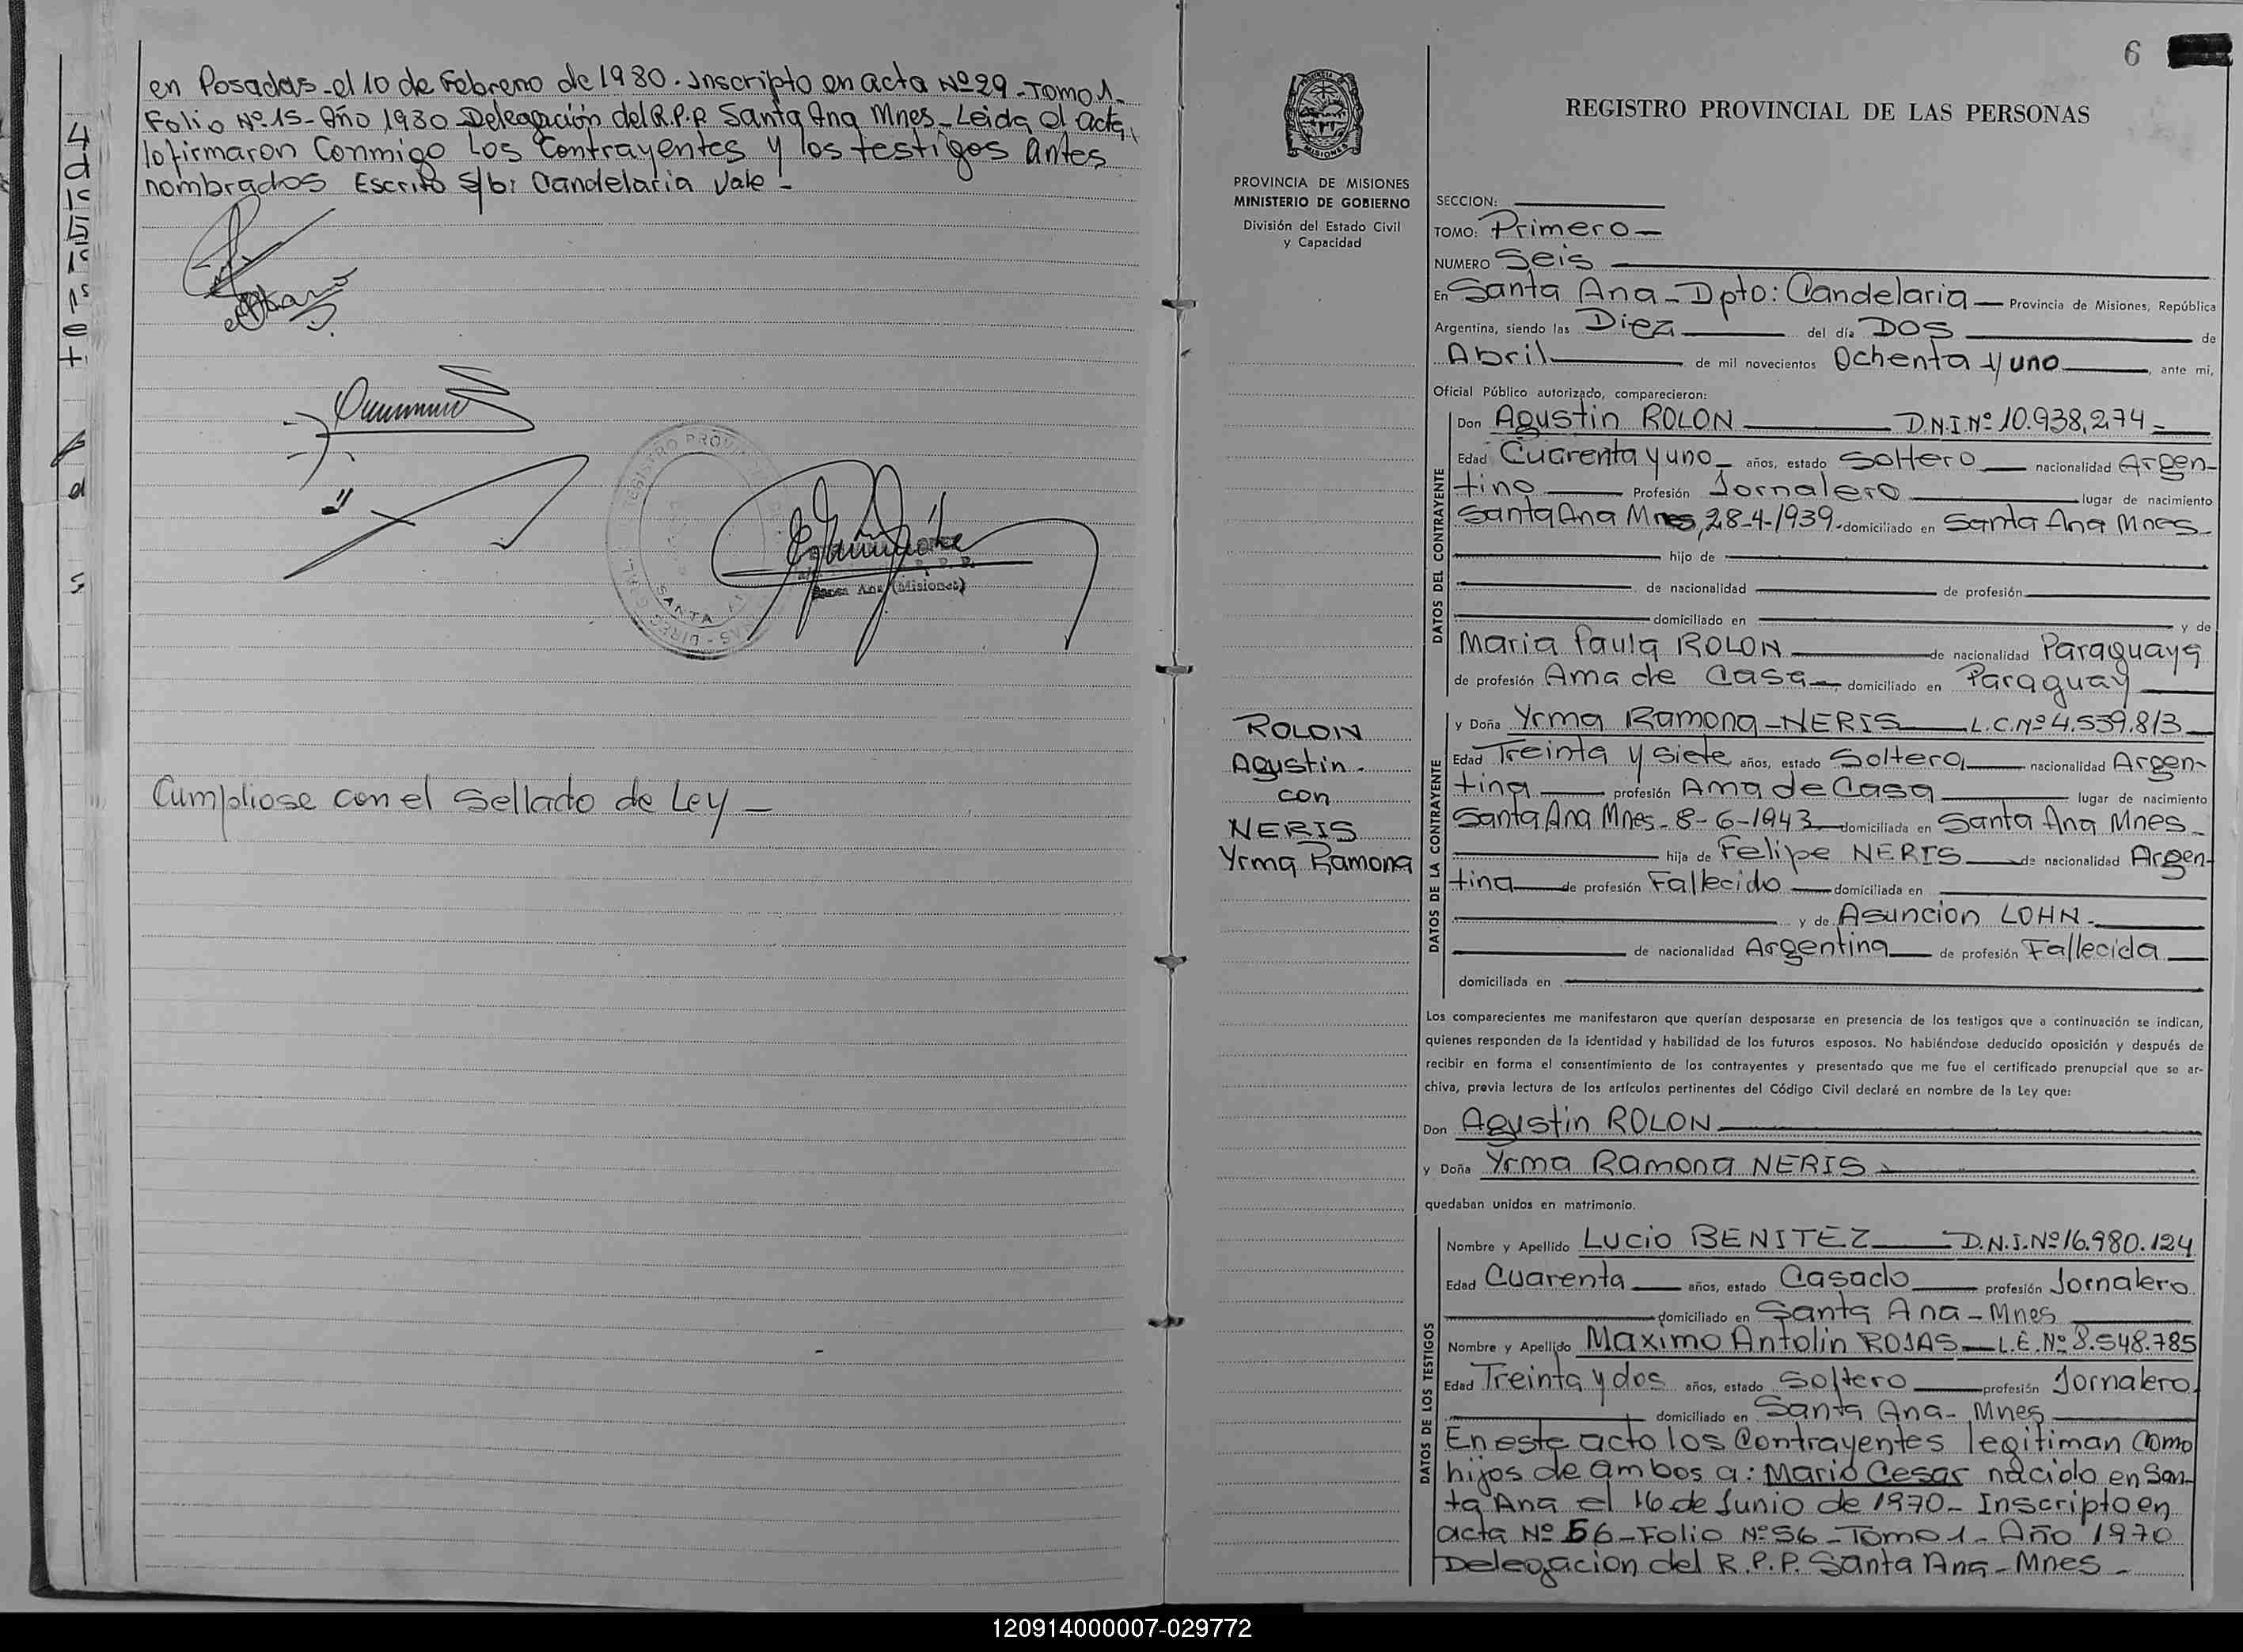 en Posadas-el 10 de Febrero de 1980. Inscripto en acta Nº29-Tomo 1-
Folio Nº.15-Año 1980 Delegación del R.P.P Santa Ana Mnes-Leida el acta,
lo firmaron Conmigo Los Contrayentes y los testigos antes
nombrados Escrito s/b: Candelaria Vale-
SANTA
Santa Ana (Misiones)
Cumpliose con el Sellado de Ley-
6
REGISTRO PROVINCIAL DE LAS PERSONAS
PROVINCIA DE MISIONES
MINISTERIO DE GOBIERNO
División del Estado Civil
y Capacidad
SECCION:
TOMO: Primero-
NUMERO Seis
En Santa Ana-Dpto: Candelaria- Provincia de Misiones, República
Argentina, siendo las Diez del día DOS de
Abril de mil novecientos Ochenta y uno, ante mi,
Oficial Público autorizado, comparecieron:
DATOS DEL CONTRAYENTE
Don Agustin ROLON D.N.I Nº 10.938,274-
Edad Cuarenta y uno- años, estado Soltero nacionalidad Argen-
tino Profesión Jornalero lugar de nacimiento
Santa Ana Mnes, 28-4-1939- domiciliado en Santa Ana Mnes-
hijo de
de nacionalidad de profesión
domiciliado en y de
Maria Paula ROLON de nacionalidad Paraguaya
de profesión Ama de Casa-, domiciliado en Paraguay
ROLON
Agustin-
con
NERIS
Yrma Ramona
DATOS DE LA CONTRAYENTE
y Doña Yrma Ramona-NERIS L.C.Nº 4.539.813
Edad Treinta y siete años, estado Soltera nacionalidad Argen-
tina profesión Ama de Casa lugar de nacimiento
Santa Ana Mnes-8-6-1943 domiciliada en Santa Ana Mnes-
hija de Felipe NERIS de nacionalidad Argen-
tina de profesión Fallecido domiciliada en
y de Asuncion LOHN-
de nacionalidad Argentina de profesión Fallecida
domiciliada en
Los comparecientes me manifestaron que querían desposarse en presencia de los testigos que a continuación se indican,
quienes responden de la identidad y habilidad de los futuros esposos. No habiéndose deducido oposición y después de
recibir en forma el consentimiento de los contrayentes y presentado que me fue el certificado prenupcial que se ar-
chiva, previa lectura de los artículos pertinentes del Código Civil declaré en nombre de la Ley que:
Don Agustin ROLON
y Doña Yrma Ramona NERIS
quedaban unidos en matrimonio.
DATOS DE LOS TESTIGOS
Nombre y Apellido Lucio BENITEZ D.N.I.Nº16.980.124
Edad Cuarenta años, estado Casado profesión Jornalero
domiciliado en Santa Ana-Mnes
Nombre y Apellido Maximo Antolin ROJAS-L.E.Nº 8.548.785
Edad Treinta y dos años, estado Soltero profesión Jornalero
domiciliado en Santa Ana-Mnes
En este acto los Contrayentes legitiman como
hijos de ambos a: Mario Cesar nacido en San-
ta Ana el 16 de Junio de 1970-Inscripto en
acta Nº 56-Folio Nº56-Tomo 1-Año 1970
Delegacion del R.P.P. Santa Ana-Mnes-
120914000007-029772